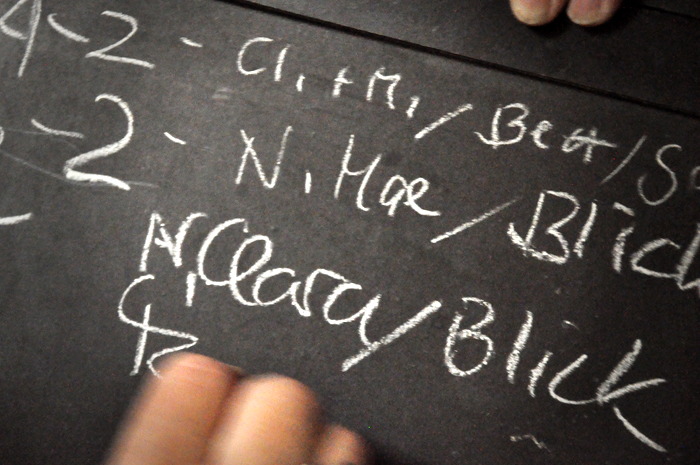 4-2 - Cl. + M. / Bett /
2 - N. Mae / Blick
N. Clara / Blick